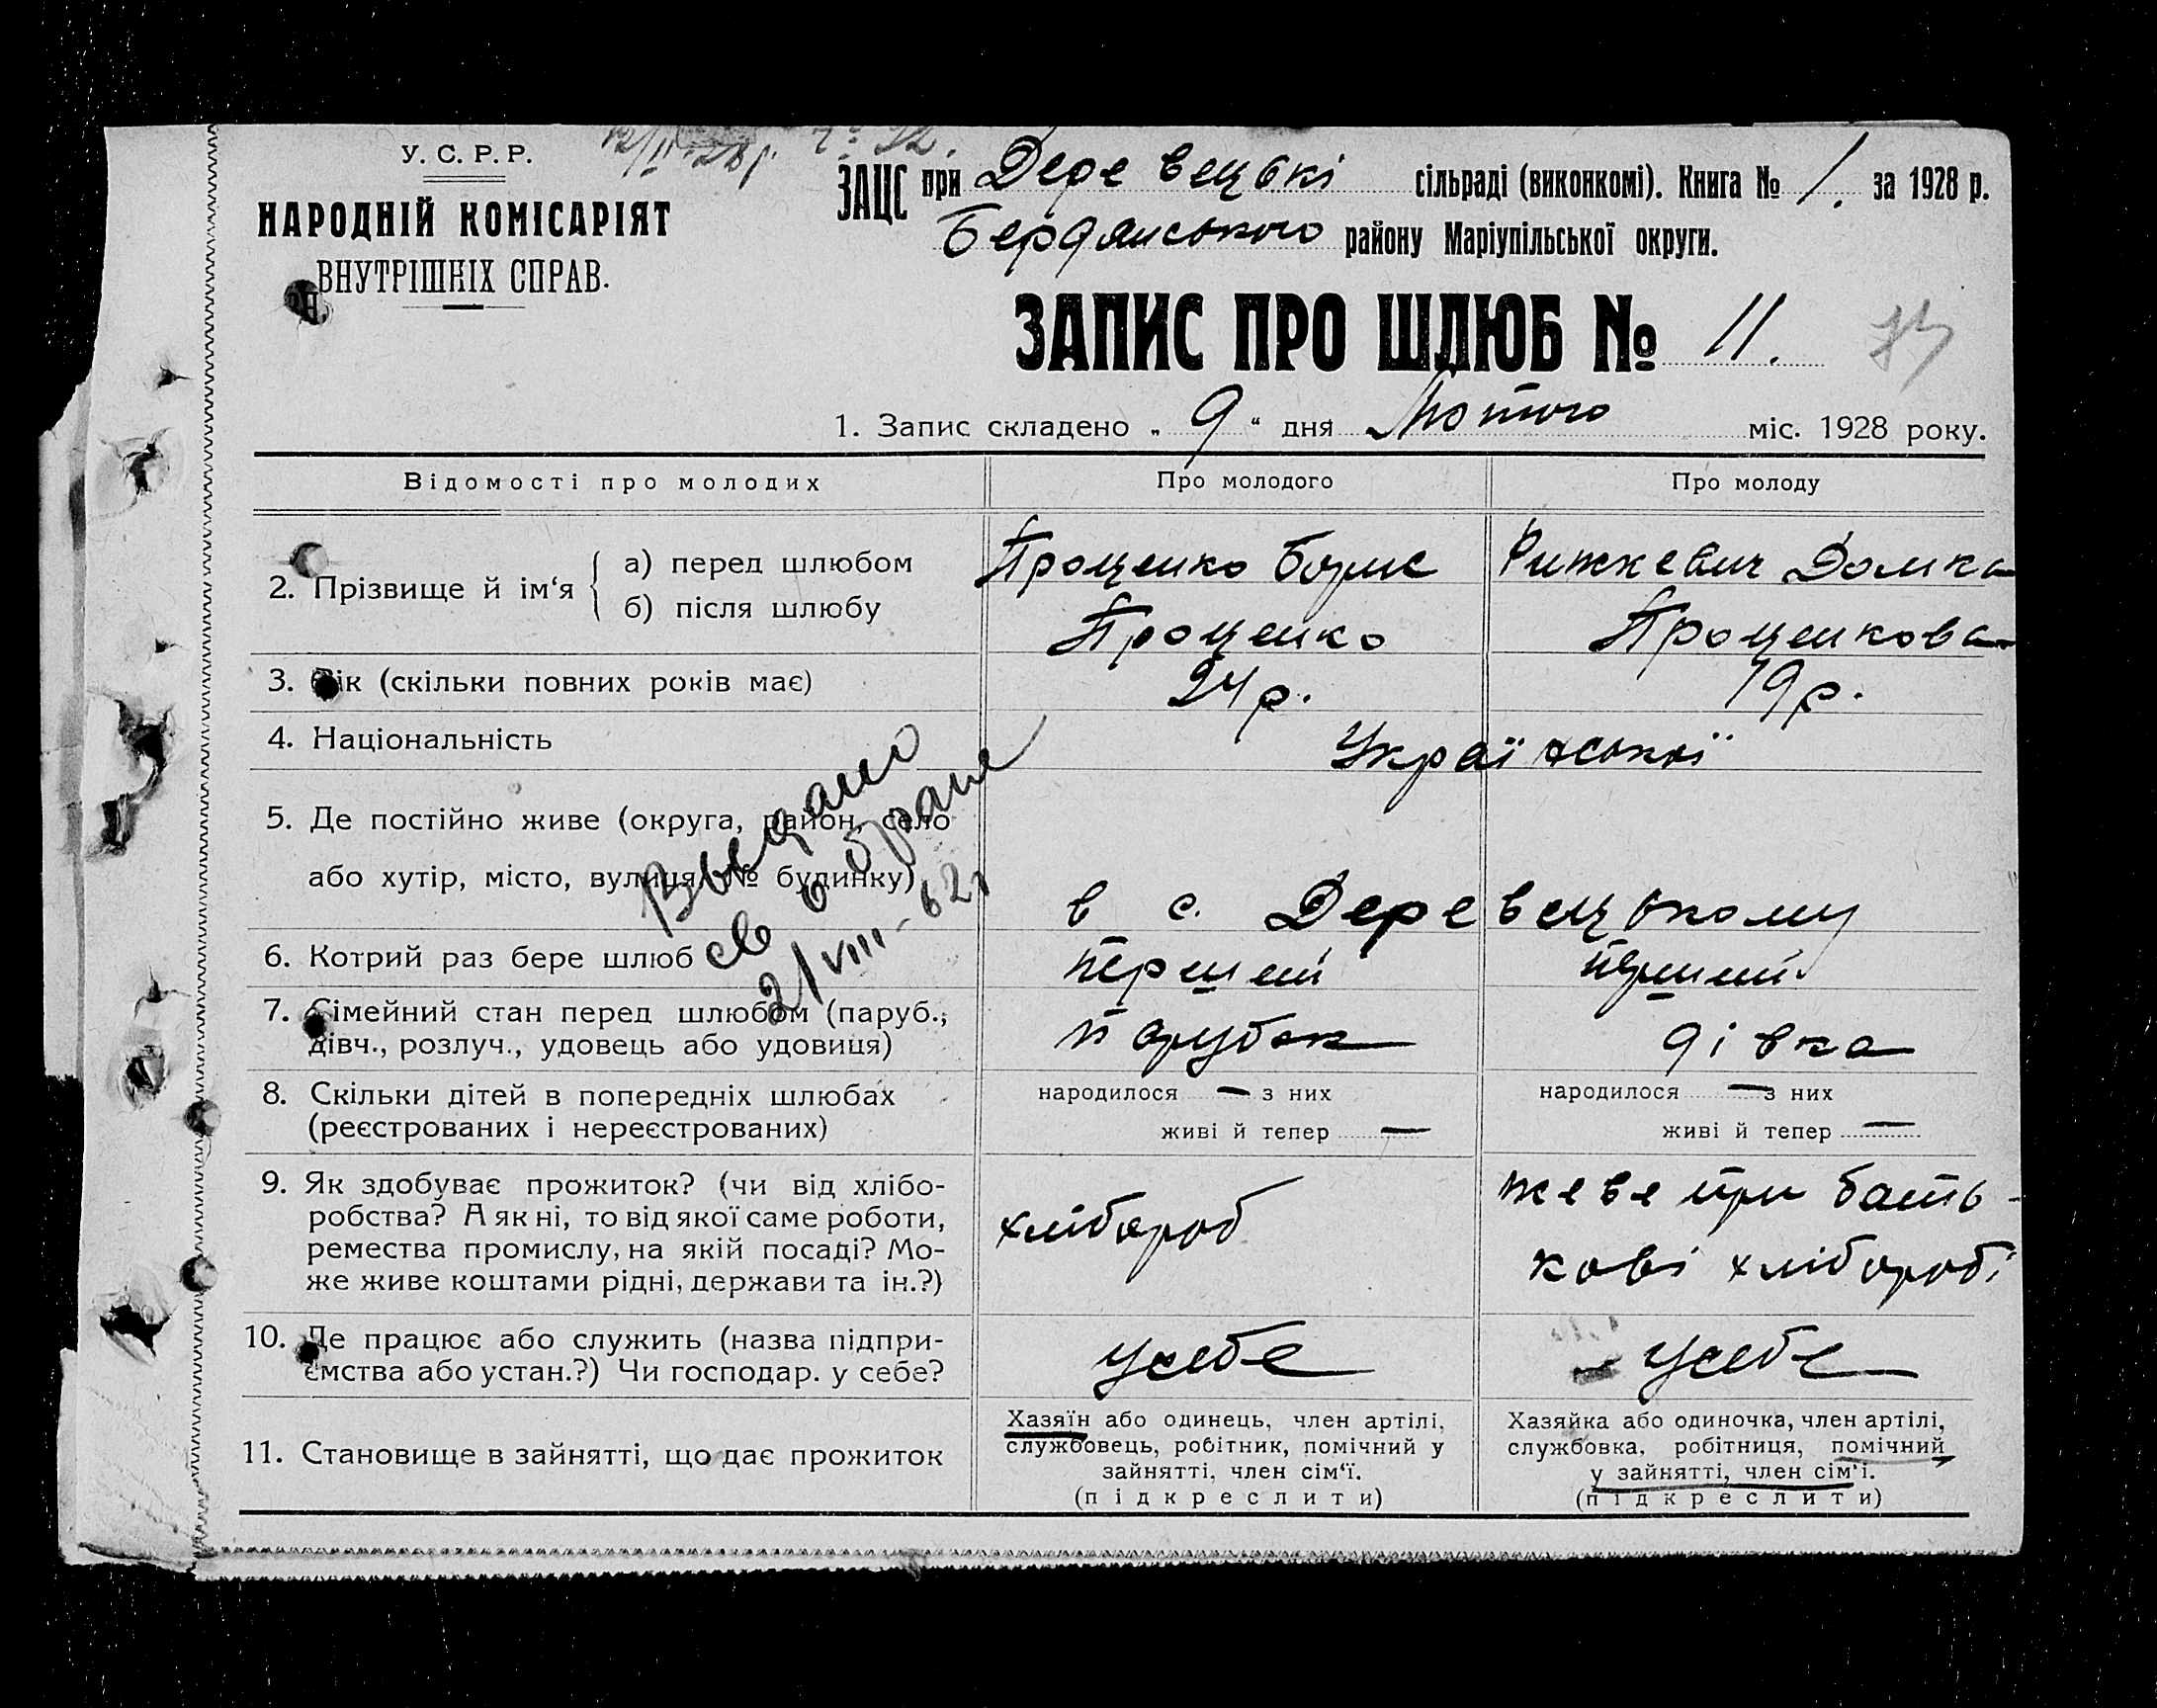 У. С. Р. Р.
НАРОДНІЙ КОМІСАРІЯТ
ВНУТРІШНІХ СПРАВ.
ЗАЦС при Деревецькі сільраді (виконкомі). Книга № 1. за 1928 р.
Бердянського району Маріупільської округи.
ЗАПИС ПРО ШЛЮБ № 11.
1. Запис складено „ 9 “ дня Лютого міс. 1928 року.
Відомості про молодих
Про молодого
Про молоду
2. Прізвище й ім‘я
а) перед шлюбом
Проценко Борис
Рижкевич Домка
б) після шлюбу
Проценко
Проценкова
3. Вік (скільки повних років має)
24 р.
19 р.
4. Національність
Української
5. Де постійно живе (округа, район, село
або хутір, місто, вулиця № будинку)
в с. Деревецькому
Выдано
св о браке
21/VIII-62г
6. Котрий раз бере шлюб
перший
перший
7. Сімейний стан перед шлюбом (паруб.,
дівч., розлуч., удовець або удовиця)
парубок
дівка
8. Скільки дітей в попередніх шлюбах
(реєстрованих і нереєстрованих)
народилося — з них
живі й тепер —
народилося — з них
живі й тепер —
9. Як здобуває прожиток? (чи від хлібо-
робства? А як ні, то від якої саме роботи,
ремества промислу, на якій посаді? Мо-
же живе коштами рідні, держави та ін.?)
хлібороб
жеве при бать-
кові хліборобі
10. Де працює або служить (назва підпри-
ємства або устан.?) Чи господар. у себе?
усебе
усебе
11. Становище в зайнятті, що дає прожиток
Хазяїн або одинець, член артілі,
службовець, робітник, помічний у
зайнятті, член сім‘ї.
(підкреслити)
Хазяйка або одиночка, член артілі,
службовка, робітниця, помічний
у зайнятті, член сім‘ї.
(підкреслити)